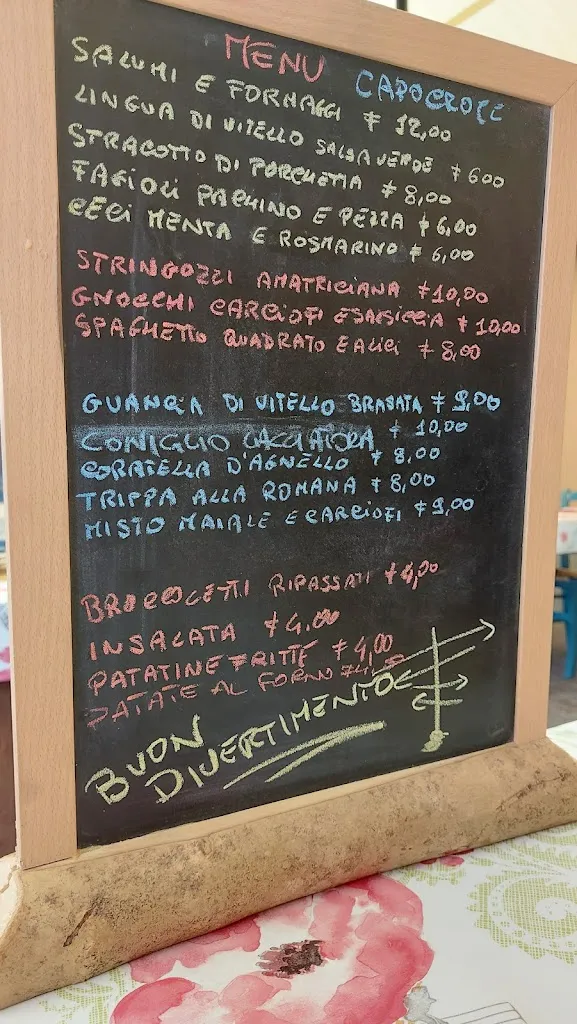 MENU CAPOCROCE
SALUMI E FORMAGGI € 12,00
LINGUA DI VITELLO SALSA VERDE € 600
STRACOTTO DI PORCHETTA € 8,00
FAGIOLI PACHINO E PEZZA € 6,00
CECI MENTA E ROSMARINO € 6,00
STRINGOZZI AMATRICIANA €10,00
GNOCCHI CARCIOFI E SALSICCIA € 10,00
SPAGHETTO QUADRATO E ALICI € 8,00
GUANCIA DI VITELLO BRASATA € 9,00
CONIGLIO CACCIATORA € 10,00
CORATELLA D'AGNELLO € 8,00
TRIPPA ALLA ROMANA € 8,00
MISTO MAIALE E CARCIOFI € 9,00
BROCCOLETTI RIPASSATI €4,00
INSALATA €4,00
PATATINE FRITTE €4,00
PATATE AL FORNO
BUON
DIVERTIMENTO